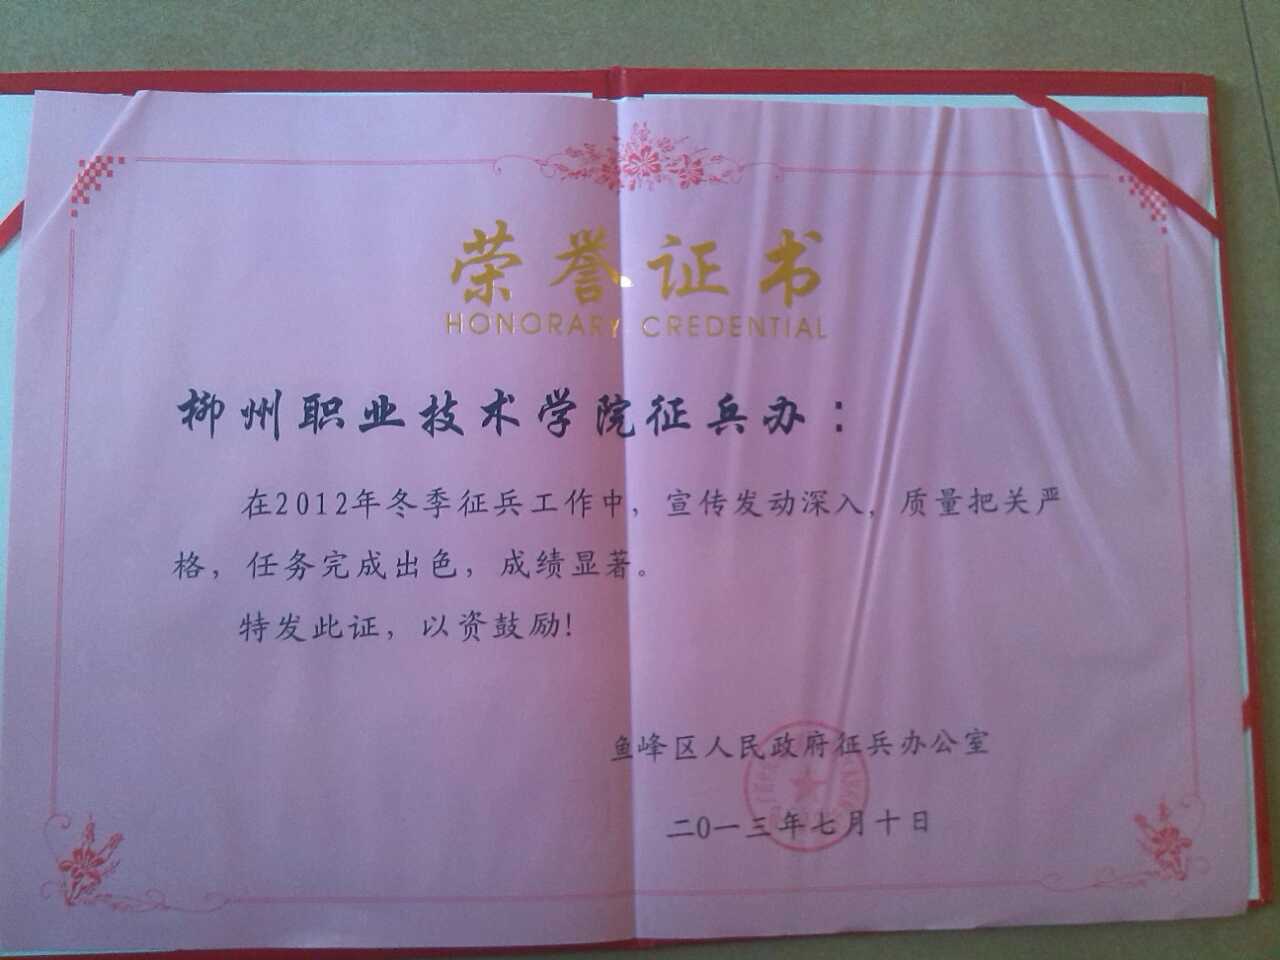 荣誉证书
HONORARY CREDENTIAL
柳州职业技术学院征兵办：
在2012年冬季征兵工作中，宣传发动深入，质量把关严
格，任务完成出色，成绩显著。
特发此证，以资鼓励！
鱼峰区人民政府征兵办公室
二0一三年七月十日